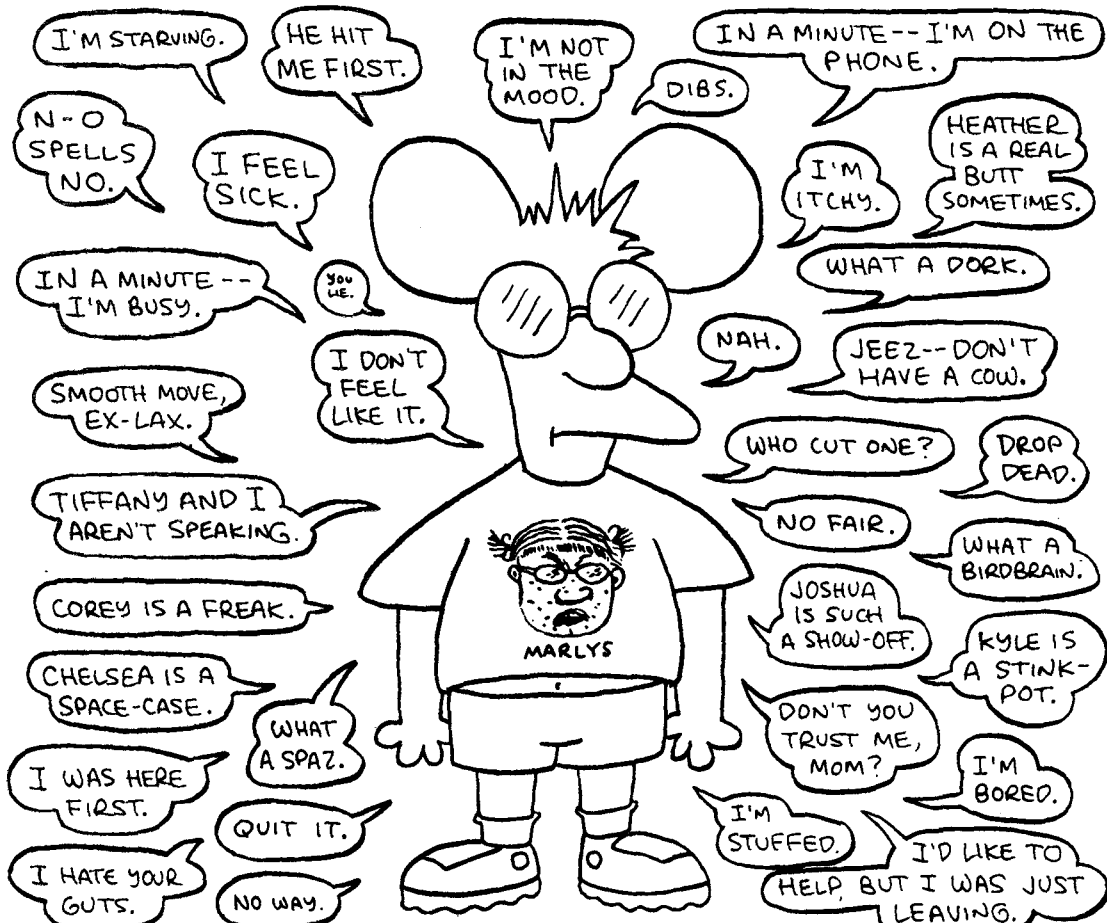 I'M STARVING.
HE HIT
ME FIRST.
I'M NOT
IN THE
MOOD.
DIBS.
IN A MINUTE -- I'M ON THE
PHONE.
N-O
SPELLS
NO.
I FEEL
SICK.
I'M
ITCHY.
HEATHER
IS A REAL
BUTT
SOMETIMES.
IN A MINUTE --
I'M BUSY.
YOU
LIE.
WHAT A DORK.
I DON'T
FEEL
LIKE IT.
NAH.
JEEZ--DON'T
HAVE A COW.
SMOOTH MOVE,
EX-LAX.
WHO CUT ONE?
DROP
DEAD.
TIFFANY AND I
AREN'T SPEAKING.
NO FAIR.
WHAT A
BIRDBRAIN.
COREY IS A FREAK.
MARLYS
JOSHUA
IS SUCH
A SHOW-OFF.
KYLE IS
A STINK-
POT.
CHELSEA IS A
SPACE-CASE.
WHAT
A SPAZ.
DON'T YOU
TRUST ME,
MOM?
I WAS HERE
FIRST.
I'M
BORED.
QUIT IT.
I'M
STUFFED.
I HATE YOUR
GUTS.
NO WAY.
I'D LIKE TO
HELP, BUT I WAS JUST
LEAVING.